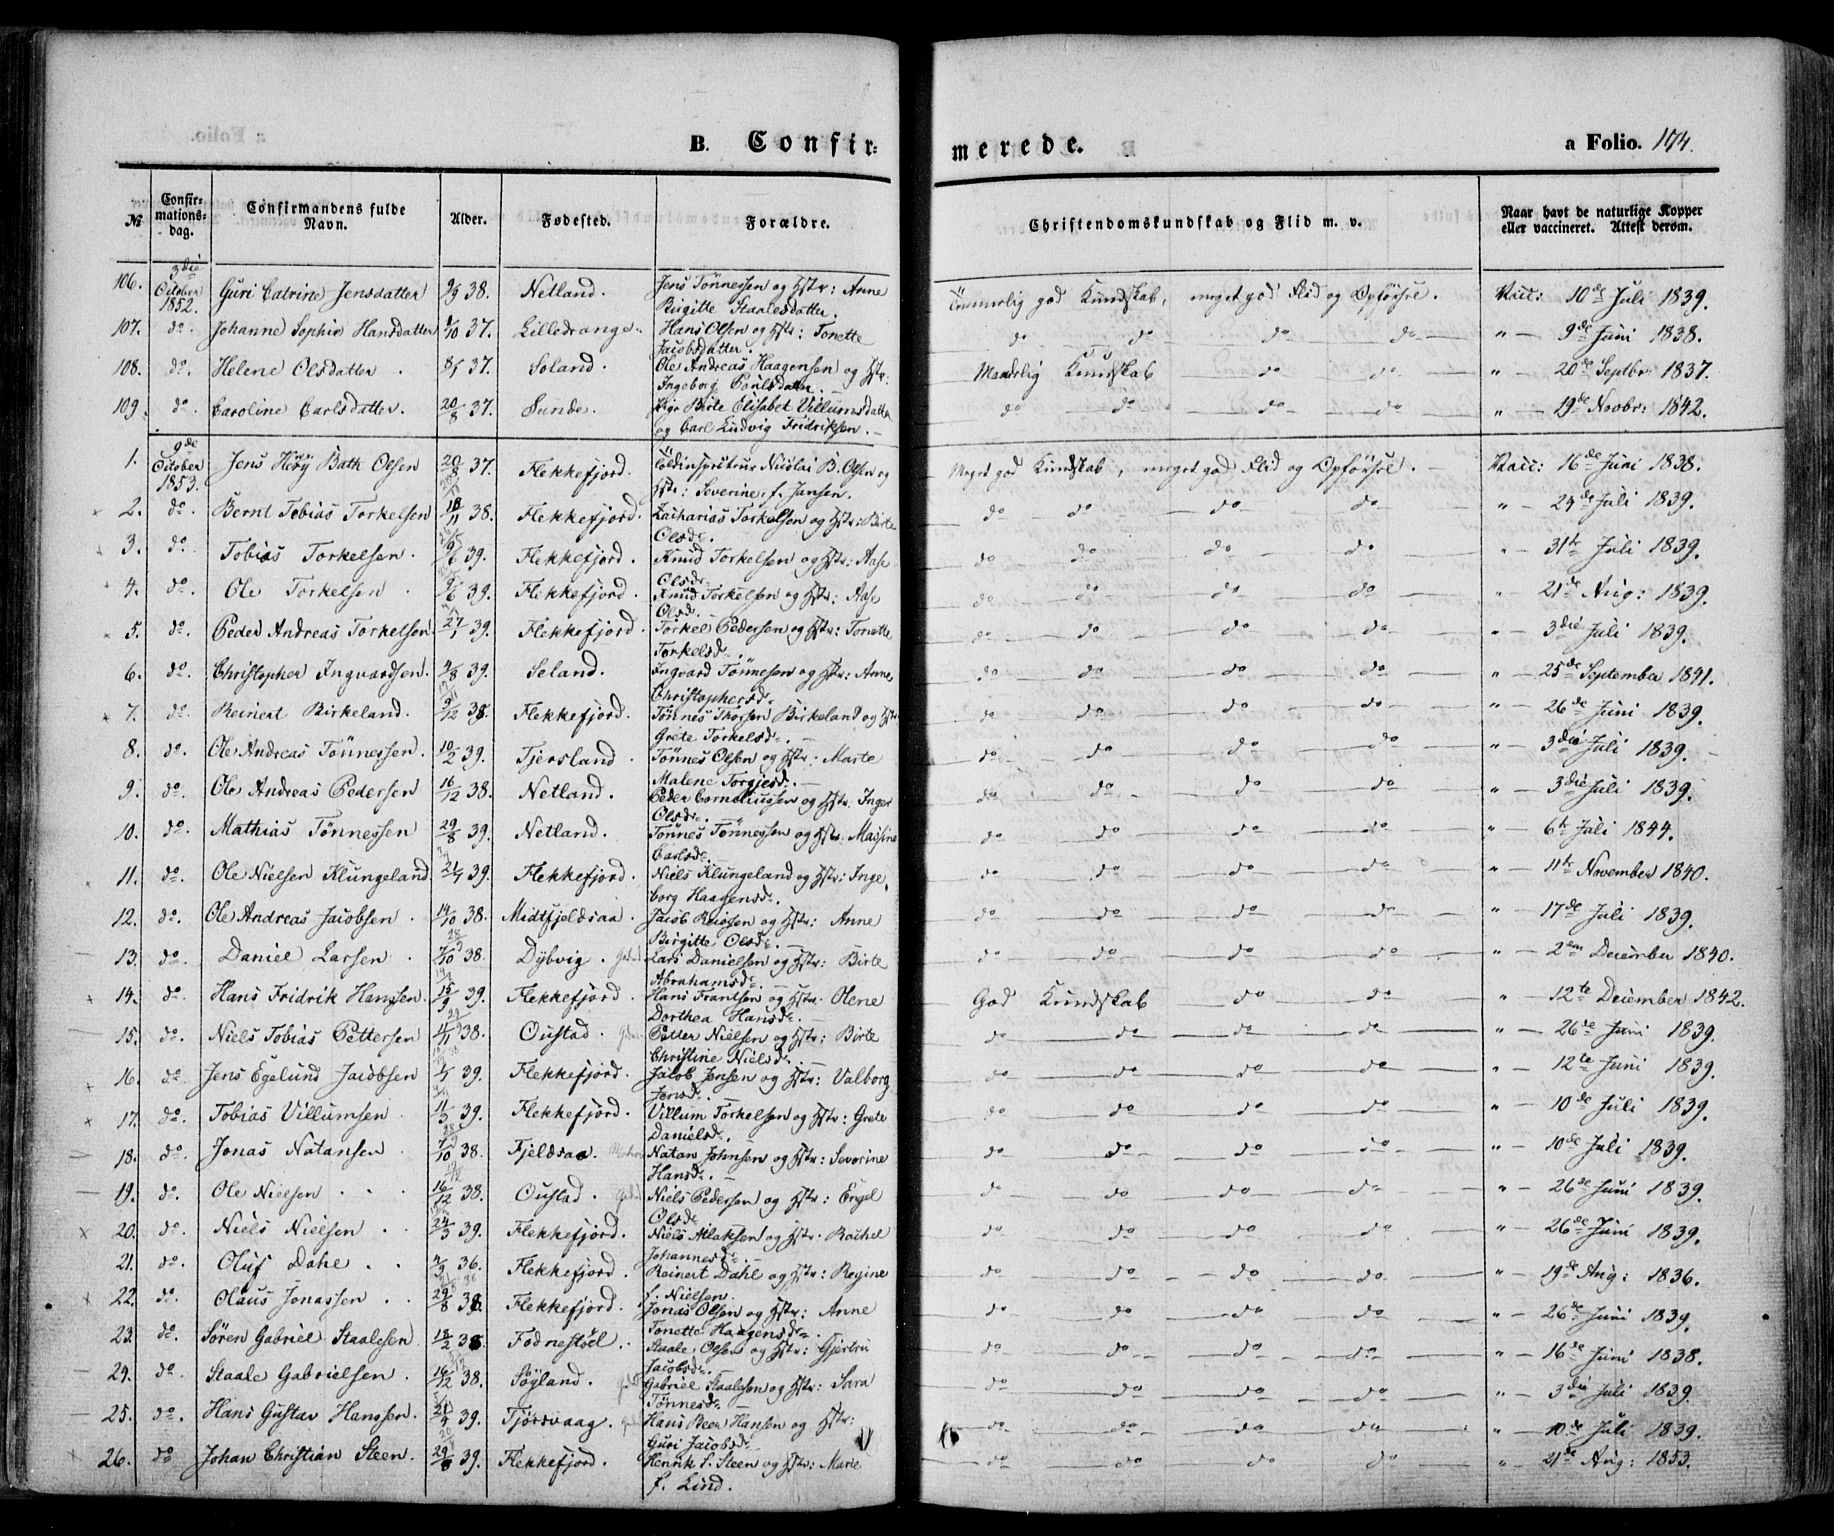 B. Confir-
merede.
a Folio. 174.
№ Confir-mations-dag. Confirmandens fulde Navn. Alder. Fødested. Forældre. Christendomskundskab og Flid m. v. Naar havt de naturlige Kopper eller vaccineret. Attest derom.
106. 3die October 1852. Guri Catrine Jensdatter 9/9 38. Netland. Jens Tønnessen og Hstr: Anne Birgitte Staalesdatter. Temmelig god Kundskab, meget god Flid og Opførsel. Vacc: 10de Juli 1839.
107. do. Johanne Sophie Hansdatter 1/10 37. Lilledrange. Hans Olsen og Hstr: Tonette Jacobsdatter. do do do do " — 9de Juni 1838.
108. do. Helene Olsdatter . 8/5 37. Soland. Ole Andreas Haagensen og Hstr: Ingeborg Poulsdatter. Maadelig Kundskab do do " — 20de Septbr: 1837.
109. do. Caroline Carlsdatter. 20/8 37. Sunde. Pige Birte Elisabet Villumsdatter og Carl Ludvig Fridriksen. — do do do do " — 19de Novbr: 1842.
1. 9de October 1853. Jens Høry Bath Olsen 20/8 37. Flekkefjord. Toldinspecteur Nicolai B. Olsen og Hstr: Severine, f. Jansen. Meget god Kundskab, meget god Flid og Opførsel. Vacc: 16de Juni 1838.
2. do. Bernt Tobias Torkelsen 18/11 38. Flekkefjord. Zacharias Torkelsen og Hstr: Birte Olsdr. do do do do " — 24de Juli 1839.
3. do. Tobias Torkelsen. 9/6 39. Flekkefjord. Knud Torkelsen og Hstr: Aase Olsdr. do do do do " — 31te Juli 1839.
4. do. Ole Torkelsen . 9/6 39. Flekkefjord. Knud Torkelsen og Hstr: Aase Olsdr. do do do do " — 21de Aug: 1839.
5. do. Peder Andreas Torkelsen. 27/1 39. Flekkefjord. Torkel Pedersen og Hstr: Tonette Torkelsdr. do do do do " — 3die Juli 1839.
6. do. Christopher Ingvardsen. 4/8 39. Seland. Ingvard Tønnesen og Hstr: Anne Christophersdr. do do do do " — 25de September 1841.
7. do. Reinert Birkeland. 9/12 38. Flekkefjord. Tønnes Thorsen Birkeland og Hstr Grete Torkelsdr. — do do do do " — 26de Juni 1839.
8. do. Ole Andreas Tønnessen. 10/2 39. Tjersland. Tønnes Olsen og Hstr: Marte Malene Torgiesdr. — do do do do " — 3die Juli 1839.
9. do. Ole Andreas Pedersen 16/12 38. Netland. Peder Corneliussen og Hstr: Inger Olsdr. — do do do do " — 3die Juli 1839.
10. do. Mathias Tønnessen 29/8 39. Netland. Tønnes Tønnessen og Hstr: Massine Carlsdr. do do do do " — 6te Juli 1844.
11. do. Ole Nielsen Klungeland 21/7 39. Flekkefjord. Niels Klungeland og Hstr: Ingeborg Haagensdr. do do do do " — 11te November 1840.
12. do. Ole Andreas Jacobsen . 14/10 38. Midtfjeldsaa. Jacob Reiersen og Hstr: Anne Birgitte Olsdr. — do do do do " — 17de Juli 1839.
13. do. Daniel Larsen . 7/10 38. Dybvig. Lars Danielsen og Hstr: Birte Abrahamsdr. — do do do do " — 2den December 1840.
14. do. Hans Fridrik Hanssen. 15/9 39. Flekkefjord. Hans Frantsen og Hstr: Olene Dorthea Hansdr. — God Kundskab do do " — 12te December 1842.
15. do. Niels Tobias Pettersen 14/11 38. Oustad. Petter Nielsen og Hstr: Birte Christine Nielsdr. do do do do " — 26de Juni 1839.
16. do. Jens Egelund Jacobsen 39. Flekkefjord. Jacob Jensen og Hstr: Valborg Jensdr. — do do do do " — 12te Juni 1839.
17. do. Tobias Villumsen . 11/3 39. Flekkefjord. Villum Torkelsen og Hstr: Grete Danielsdr. do do do do " — 10de Juli 1839.
18. do. Jonas Natansen . 7/10 38. Fjeldsaa. Natan Johnsen og Hstr: Severine Hansdr. — do do do do " — 10de Juli 1839.
19. do. Ole Nielsen . . 16/12 38. Oustad. Niels Pedersen og Hstr: Engel Olsdr. do do do do " — 26de Juni 1839.
20. do. Niels Nielsen . . 24/3 39. Flekkefjord. Niels Atlaksen og Hstr: Rachel Johannesdr. — do do do do " — 26de Juni 1839.
21. do. Oluf Dahl . . 4/9 36. Flekkefjord. Reinert Dahl og Hstr: Regine f. Nielsen. do do do do " — 19de Aug: 1836.
22. do. Olaus Jonassen . . 29/8 38. Flekkefjord. Jonas Olsen og Hstr: Anne Tonette Haagensdr. do do do do " — 26de Juni 1839.
23. do. Søren Gabriel Staalesen 18/2 38 Fodnestøl. Staale Olsen og Hstr: Gjertru Jacobsdr. do do do do " — 16de Juni 1838.
24. do. Staale Gabrielsen . 16/12 38. Søyland. Gabriel Staalesen og Hstr: Sara Tønnesdr. — do do do do " — 3die Juli 1839.
25. do. Hans Gustav Hanssen. 39. Tjørsvaag. Hans Peer Hansen og Hstr: Guri Jacobsdr. do do do do " — 10de Juli 1839.
26. do Johan Christian Steen. 29/8 39. Flekkefjord. Henrik S. Steen og Hstr: Marie f. Lind. do do do do " — 21de Aug: 1853.